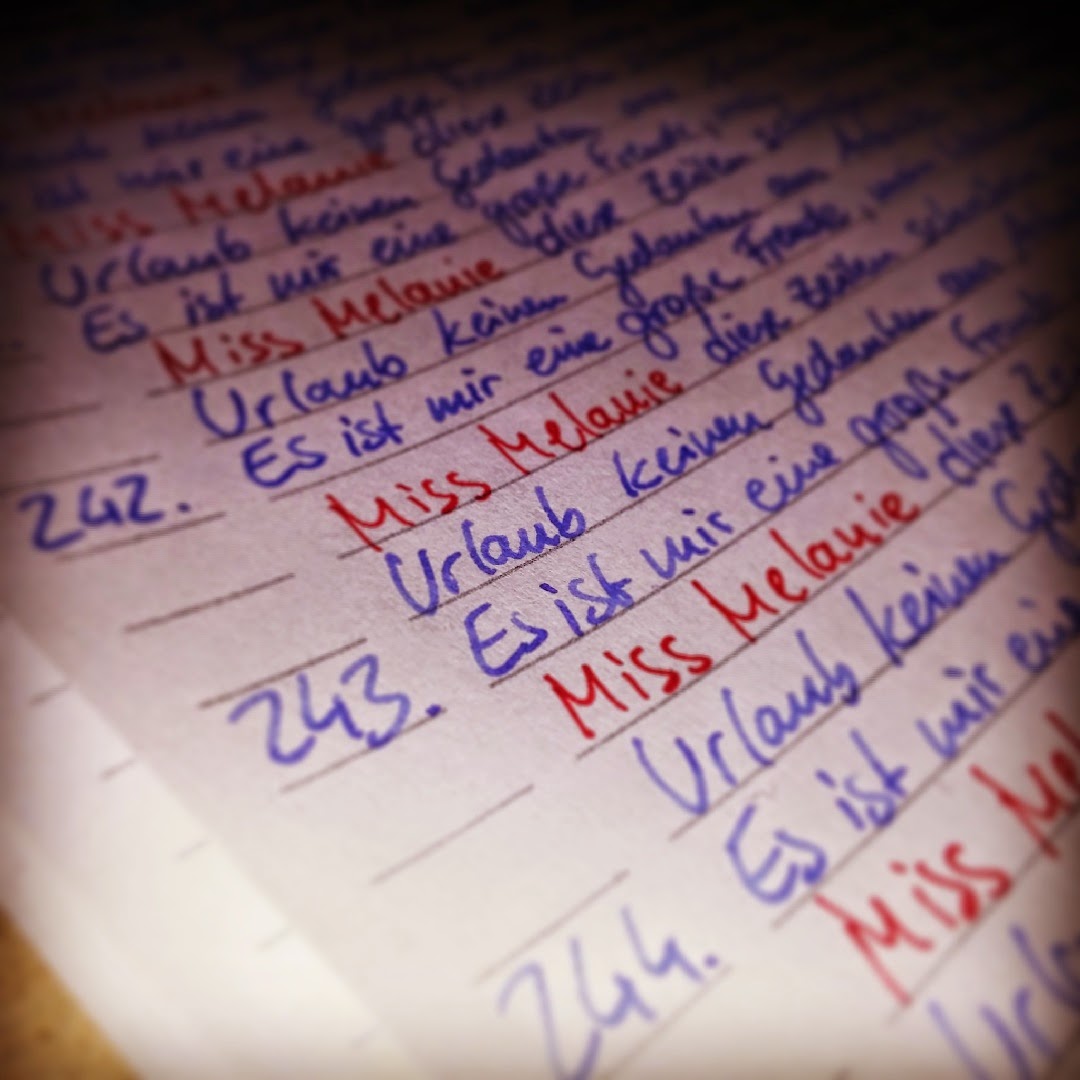 Melanie
keinen
ist mir eine große
Miss Melanie diese
Urlaub keinen Gedanken an
Es ist mir eine große Freude,
Miss Melanie diese Zeilen
Urlaub keinen Gedanken an
242. Es ist mir eine große Freude,
Miss Melanie diese Zeilen
Urlaub keinen Gedanken an
243. Es ist mir eine große Freude
Miss Melanie diese Ze
Urlaub keinen Ged
244. Es ist mir eine
Miss Mel
Url